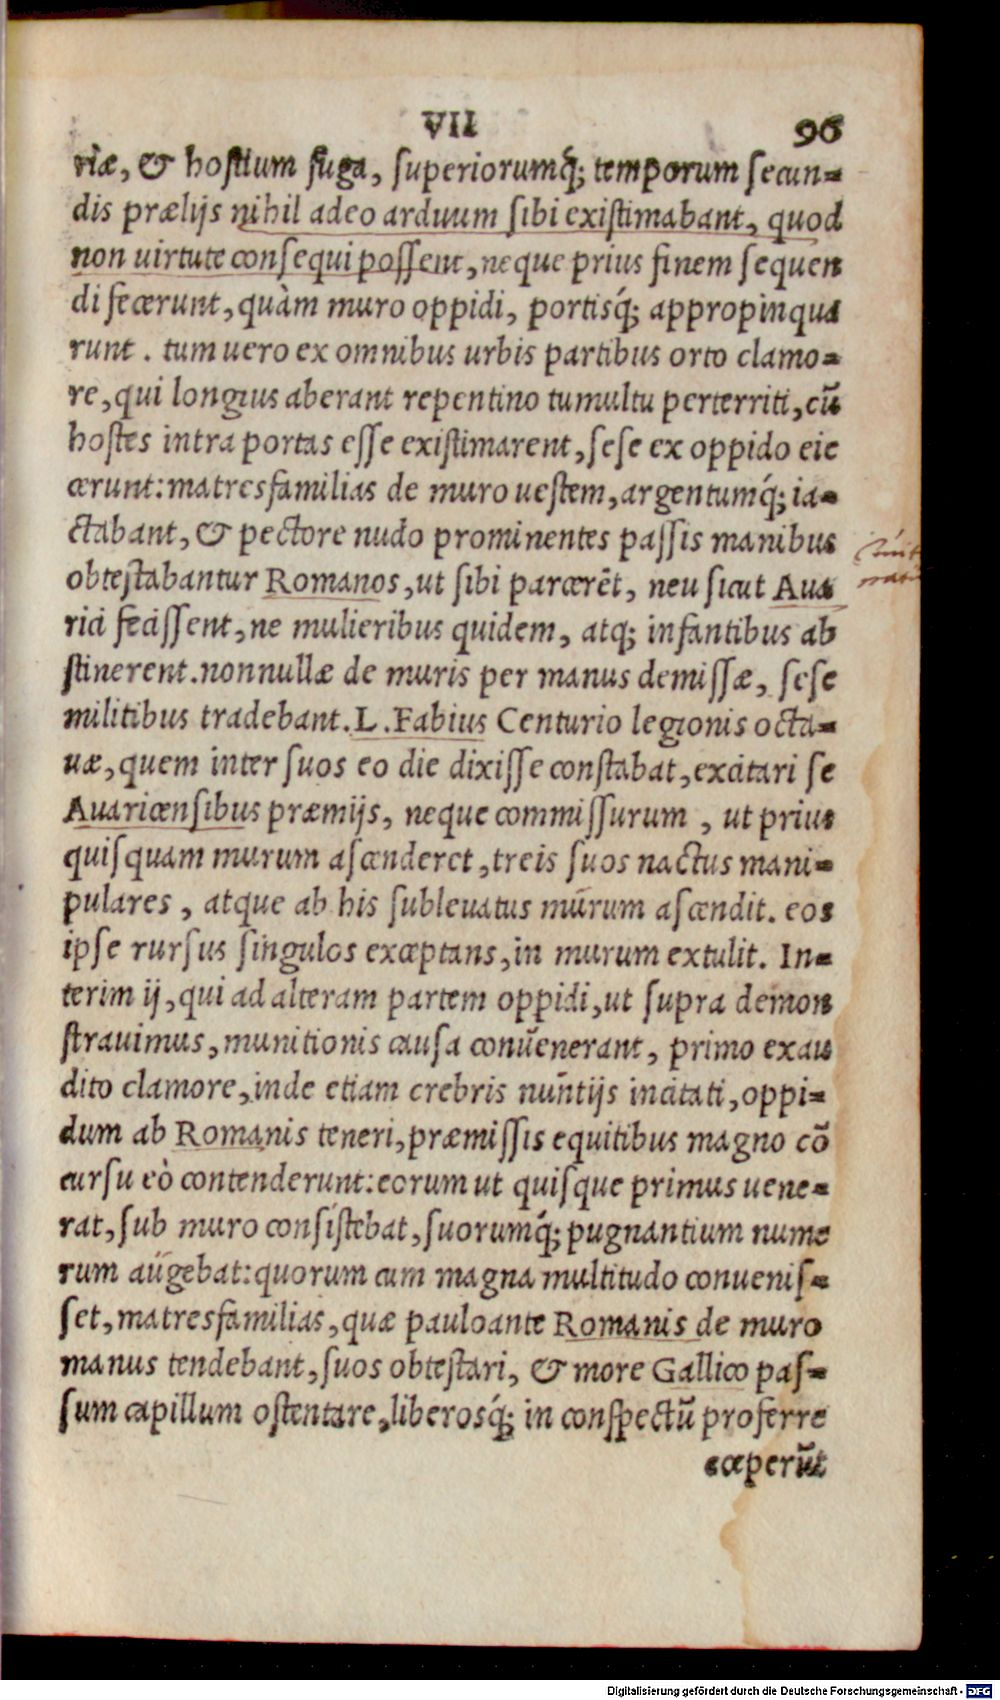 VII 96
riæ, & hostium fuga, superiorumq́; temporum secun-
dis prælijs nihil adeo arduum sibi existimabant, quod
non uirtute consequi possent, neque prius finem sequen
di fecerunt, quàm muro oppidi, portisq́; appropinqua
runt. tum uero ex omnibus urbis partibus orto clamo-
re, qui longius aberant repentino tumultu perterriti, cū
hostes intra portas esse existimarent, sese ex oppido eie
cerunt: matresfamilias de muro uestem, argentumq́; ia-
ctabant, & pectore nudo prominentes passis manibus
obtestabantur Romanos, ut sibi parcerēt, neu sicut Aua
rici fecissent, ne mulieribus quidem, atq; infantibus ab
stinerent. nonnullæ de muris per manus demissæ, sese
militibus tradebant. L. Fabius Centurio legionis octa-
uæ, quem inter suos eo die dixisse constabat, excitari se
Auaricensibus præmijs, neque commissurum, ut prius
quisquam murum ascenderet, treis suos nactus mani-
pulares, atque ab his subleuatus murum ascendit. eos
ipse rursus singulos exceptans, in murum extulit. In-
terim ij, qui ad alteram partem oppidi, ut supra demon
strauimus, munitionis causa conuenerant, primo exau
dito clamore, inde etiam crebris nuntijs incitati, oppi-
dum ab Romanis teneri, præmissis equitibus magno cō
cursu eò contenderunt: eorum ut quisque primus uene-
rat, sub muro consistebat, suorumq́; pugnantium nume
rum augebat: quorum cum magna multitudo conuenis-
set, matresfamilias, quæ pauloante Romanis de muro
manus tendebant, suos obtestari, & more Gallico pas-
sum capillum ostentare, liberosq́; in conspectū proferre
cœperūt
Digitalisierung gefördert durch die Deutsche Forschungsgemeinschaft - DFG